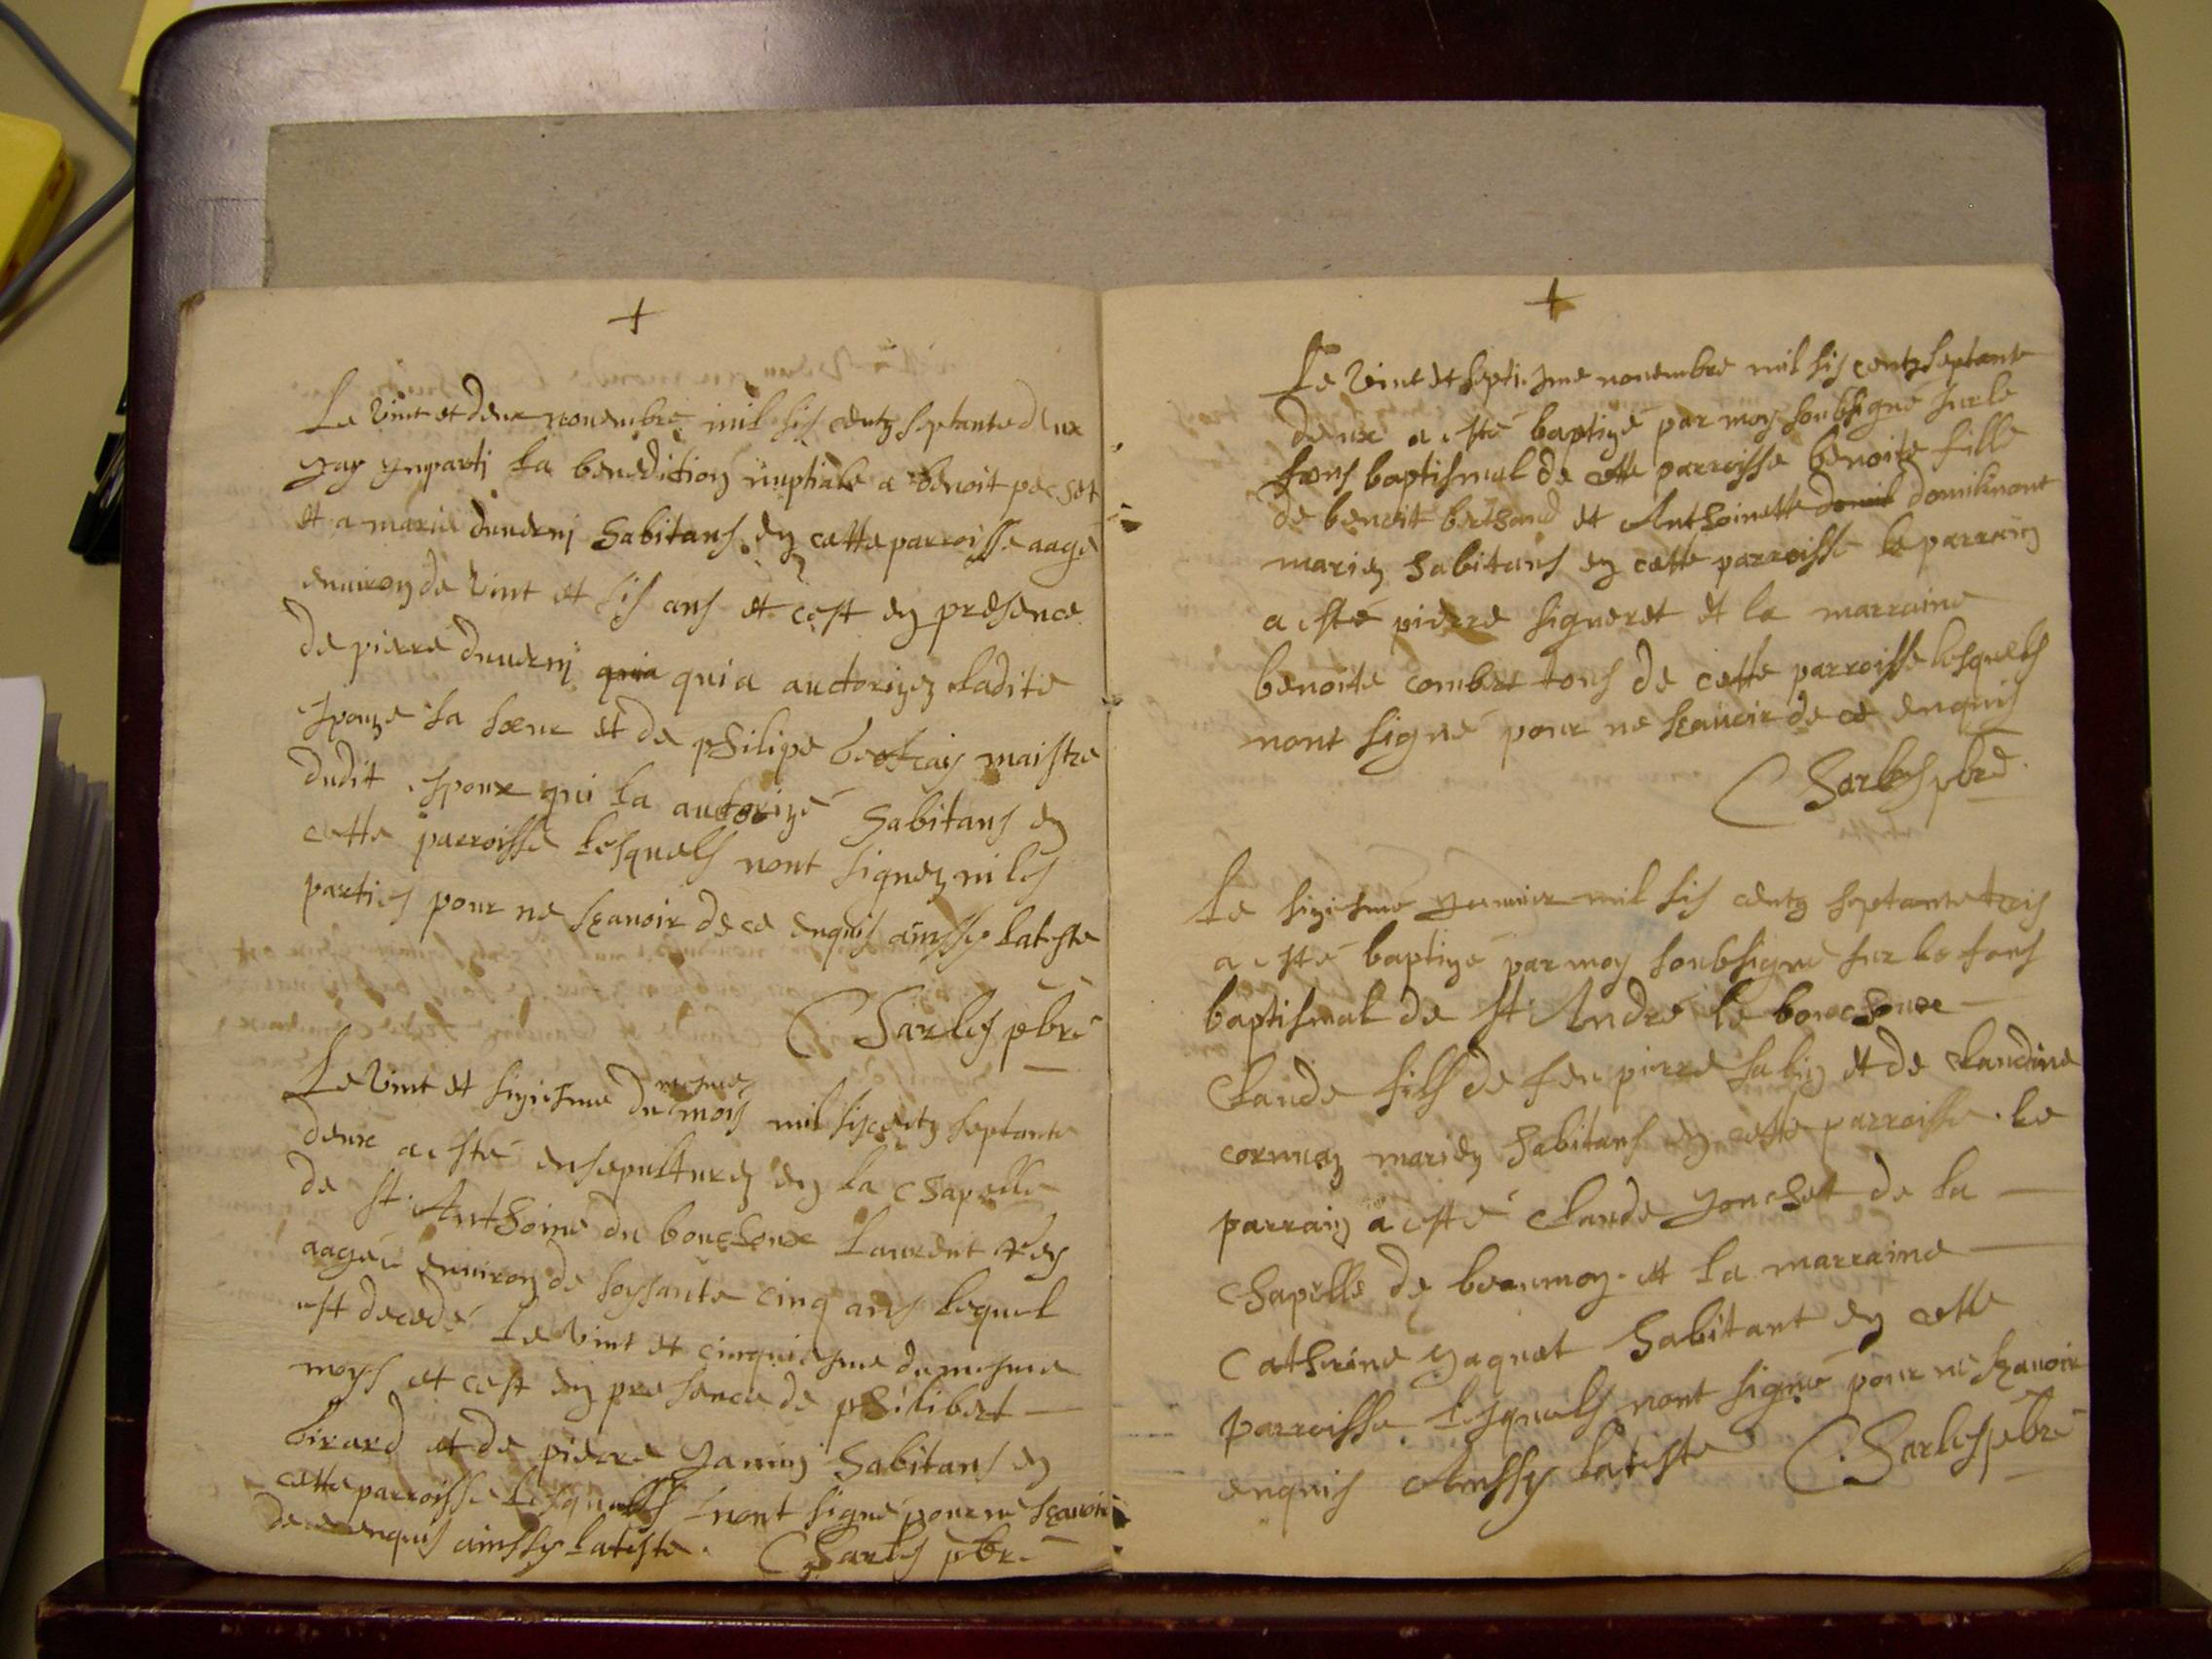 +
Le vint et deux novembre mil sis centz septante deux
jay ynparti la benediction nuptiale a benoit pechet
et a marie duverni habitans en cette parroisse aagé
environ de vint et sis ans et cest en presence
de pierre duverni quia qui a auctorizez ladite
espouze sa soeur et de philipe maistre
dudit espoux qui la auctorizé habitans en
cette parroisse lesquels nont signez ni les
parties pour ne sçavoir de ce enquis ainssy lateste
Charles pbre
Le vint et siziesme du mesme mois mil sis centz septante
deux a esté ensepulturez en la chapelle
de st Anthoine du bouchoux Laurent
aagée environ de soyssante cinq ans lequel
est decedé le vint et cinquiesme du mesme
moys et cest en presence de philibert
birard et de pierre Janin habitans en
cette parroisse lesquells nont signé pour ne sçavoir
de ce enquis ainssy lateste. Charles pbre
+
Le vint et septiesme novembre mil sis centz septante
deux a esté baptizé par moy soubsigné sur le
fons baptismal de cette parroisse benoite fille
de benoit berthaud et Anthoinette domil domilmont
mariez habitans en cette parroisse le parrain
a esté pierre sigueret et la marraine
benoite combet tous de cette parroisse lesquels
nont signé pour ne sçavoir de ce enquis
Charles pbre
Le siziesme janvier mil sis centz septante trois
a esté baptizé par moy soubsigné sur le fons
baptismal de st Andre le bouchoux
Claude fils de feu pierre sabin et de claudine
mariez habitans en cette parroisse. le
parrain a esté Claude Jonchet de la
chapelle de beaumon. et la marraine
Catherine Jaquet habitant en cette
parroisse lesquels nont signé pour ne sçavoir
enquis Ainssy lateste Charles pbre